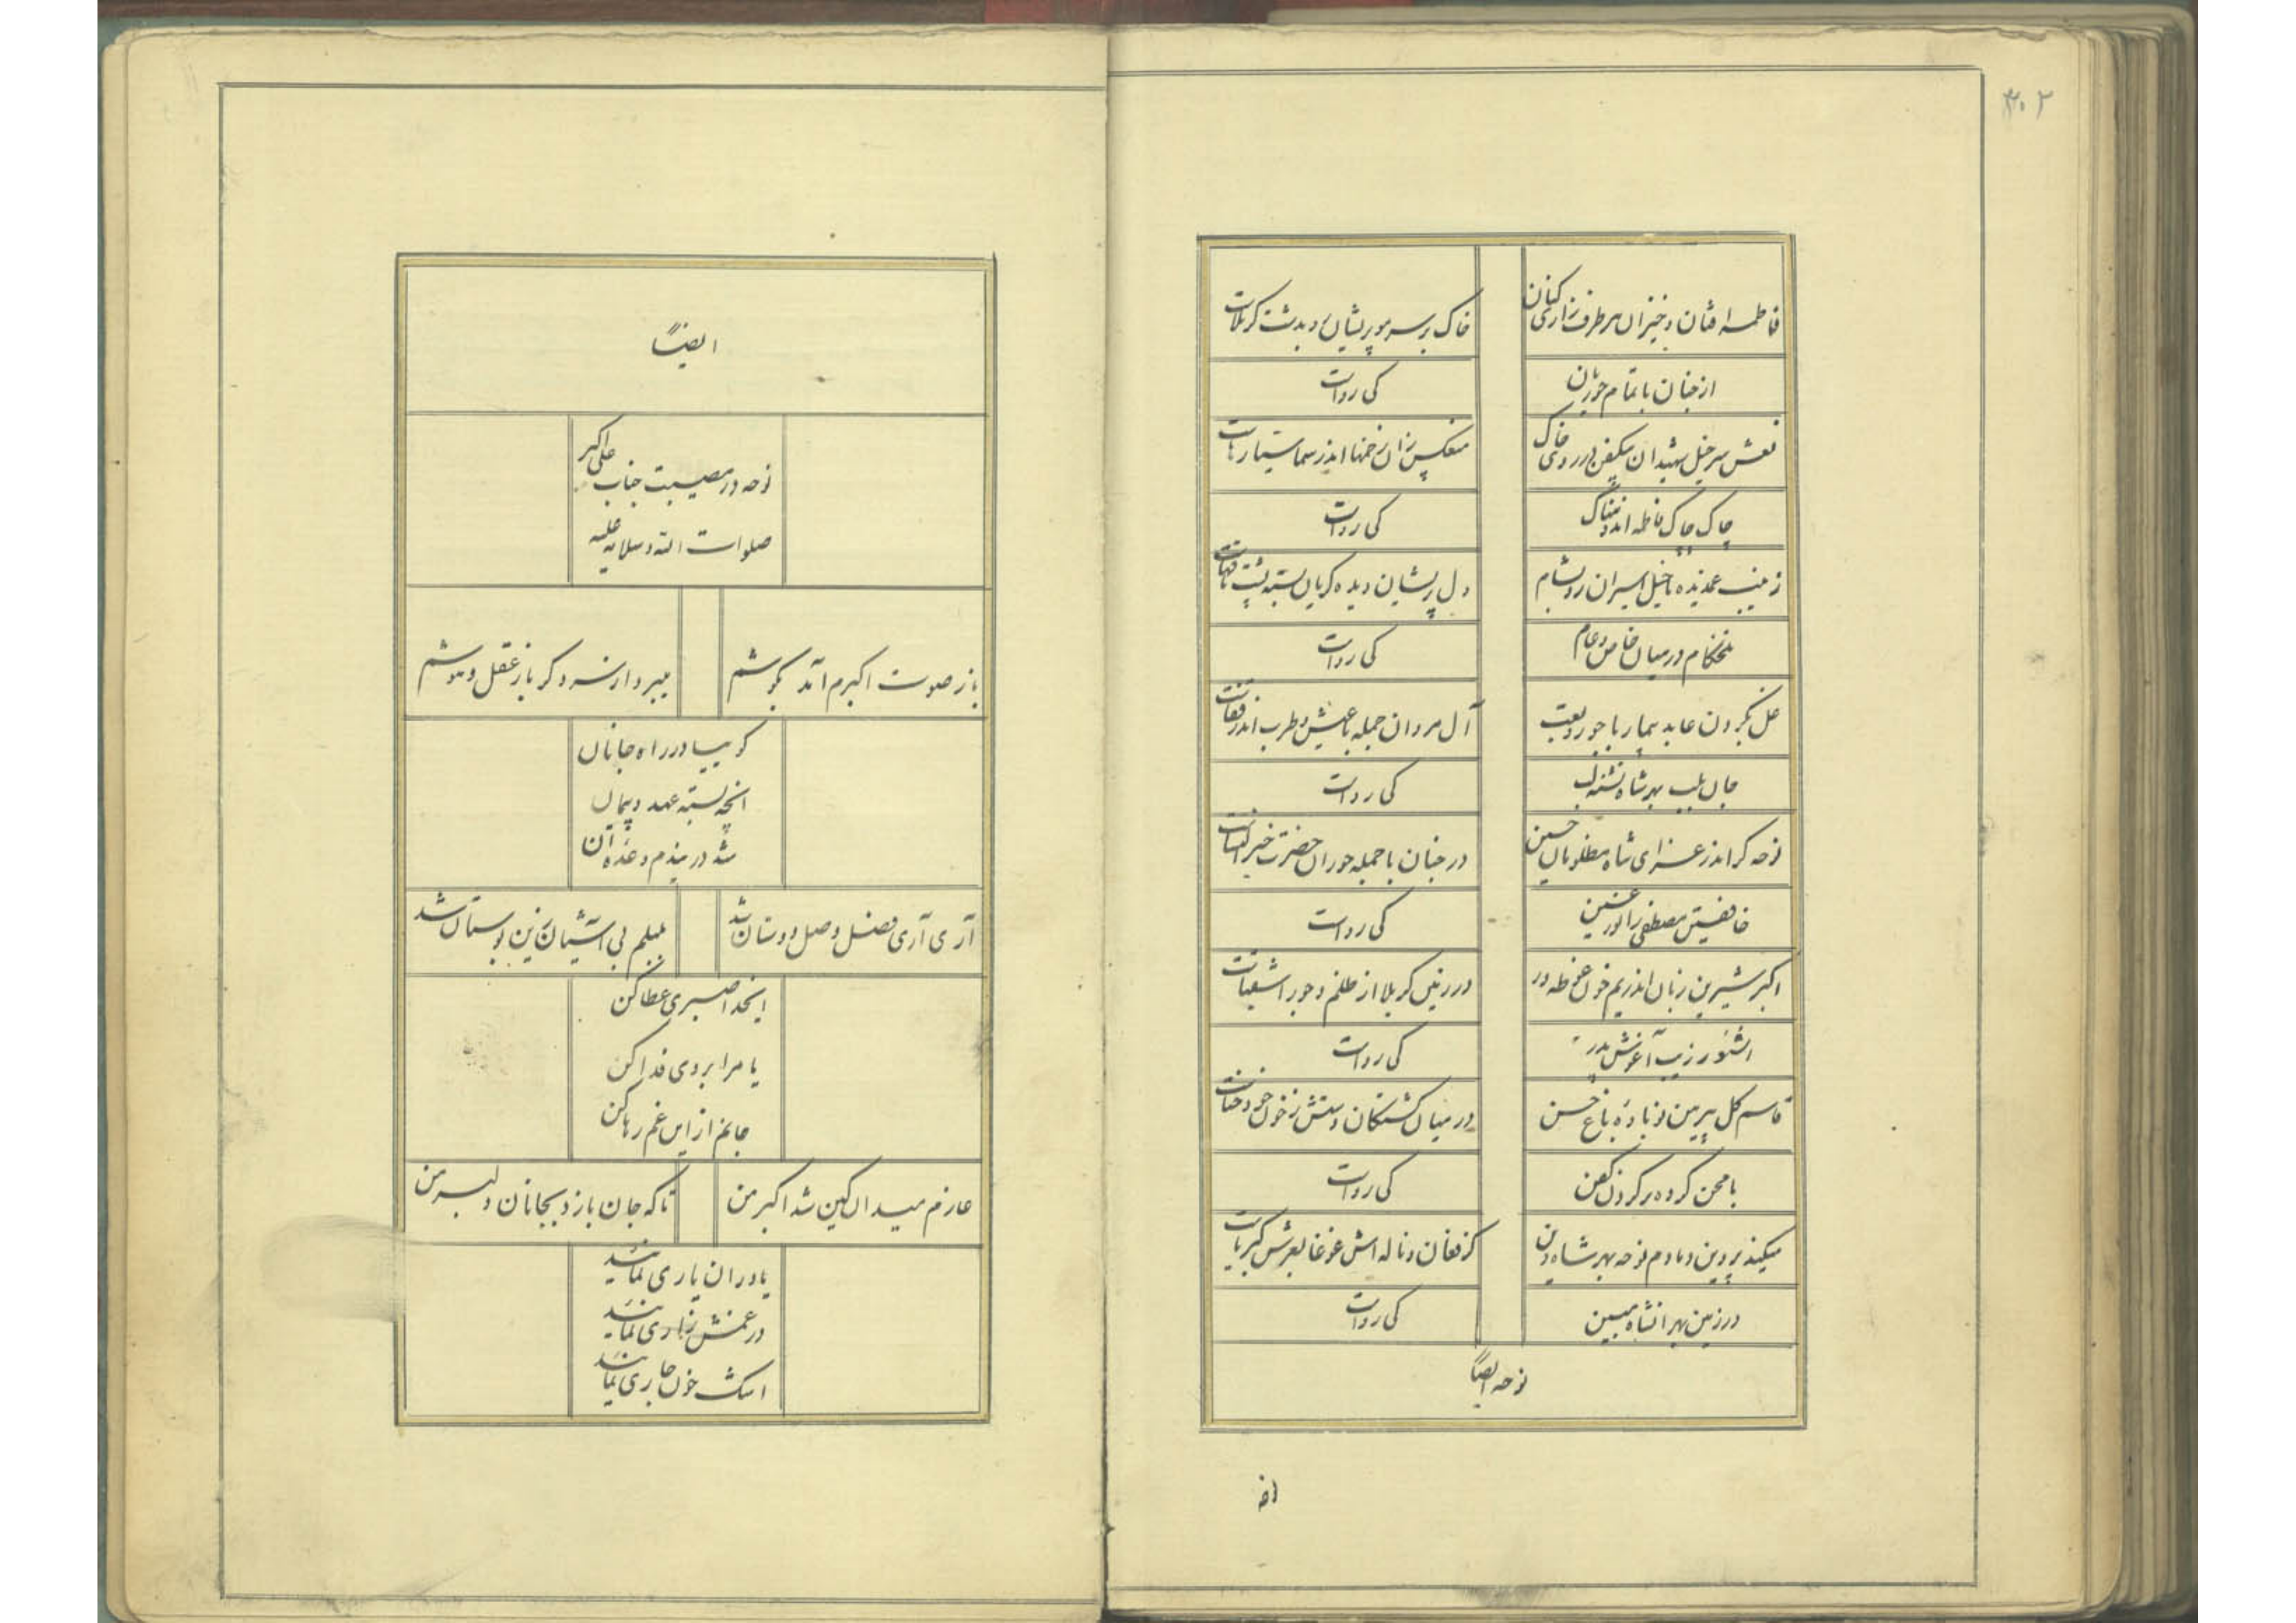 ۳۰۲
فاطمه افتان و خیزان هر طرف زاری کنان
خاک بر سر مو پریشان رو بدشت کربلاست
از جنان با تمام حوریان
کی رواست
نعش سر خیل شهیدان بیکفن در روی خاک
منعکس زان زخمها اندر سما سیاره‌هاست
چاک چاک فاطمه اندوهناک
کی رواست
زینب غمدیده با خیل اسیران رو بشام
دل پریشان دیده گریان بسته پشت ناقهاست
تلخکام در میان خاص و عام
کی رواست
غل بگردن عابد بیمار با جور و تعب
آل مروان جمله با عیش و طرب اندر قفاست
جان بلب بهر شاه تشنه لب
کی رواست
نوحه گر اندر عزای شاه مظلومان حسین
در جنان با جمله حوران حضرت خیر النساست
خافقین مصطفی را نور عین
کی رواست
اکبر شیرین زبان اندر یم خون غوطه ور
در زمین کربلا از ظلم و جور اشقیاست
زیب آغوش پدر
کی رواست
قاسم گل پیرهن نوباوهٔ باغ حسن
در میان کشتگان دستش ز خون خود حناست
با محن کرده بر گردن کفن
کی رواست
میکند پروین دمادم نوحه بهر شاه دین
کز فغان و ناله اش غوغا بعرش کبریاست
در زمین بهر انشاه مبین
کی رواست
نوحه ایضاً
ایضاً
نوحه در مصیبت جناب علی اکبر
صلوات الله و سلامه علیه
باز صوت اکبرم آمد بگوشم
میبرد از سر دگر باز عقل و هوشم
گوییا در راه جانان
انچه بسته عهد و پیمان
شد وعده آن
آری آری فصل وصل دوستان شد
بلبلم بی آشیان زین بوستان شد
ایخدا صبری عطا کن
یا مرا بروی فدا کن
جانم از این غم رها کن
عازم میدان کین شد اکبر من
تا که جان بازد بجانان دلبر من
یاوران یاری نمائید
در غمش زاری نمائید
اشک خون جاری نمائید